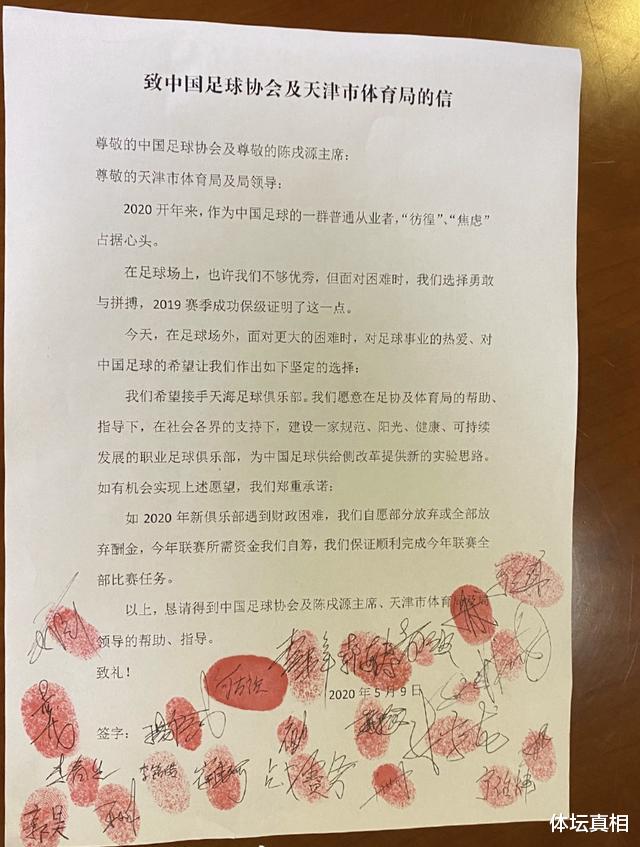 致中国足球协会及天津市体育局的信
尊敬的中国足球协会及尊敬的陈戌源主席：
尊敬的天津市体育局及局领导：
2020 开年来，作为中国足球的一群普通从业者，“彷徨”、“焦虑”
占据心头。
在足球场上，也许我们不够优秀，但面对困难时，我们选择勇敢
与拼搏，2019 赛季成功保级证明了这一点。
今天，在足球场外，面对更大的困难时，对足球事业的热爱、对
中国足球的希望让我们作出如下坚定的选择：
我们希望接手天海足球俱乐部。我们愿意在足协及体育局的帮助、
指导下，在社会各界的支持下，建设一家规范、阳光、健康、可持续
发展的职业足球俱乐部，为中国足球供给侧改革提供新的实验思路。
如有机会实现上述愿望，我们郑重承诺：
如 2020 年新俱乐部遇到财政困难，我们自愿部分放弃或全部放
弃酬金，今年联赛所需资金我们自筹，我们保证顺利完成今年联赛全
部比赛任务。
以上，恳请得到中国足球协会及陈戌源主席、天津市体育局
领导的帮助、指导。
致礼！
2020 年 5 月 9 日
签字：
郭昊
体坛真相